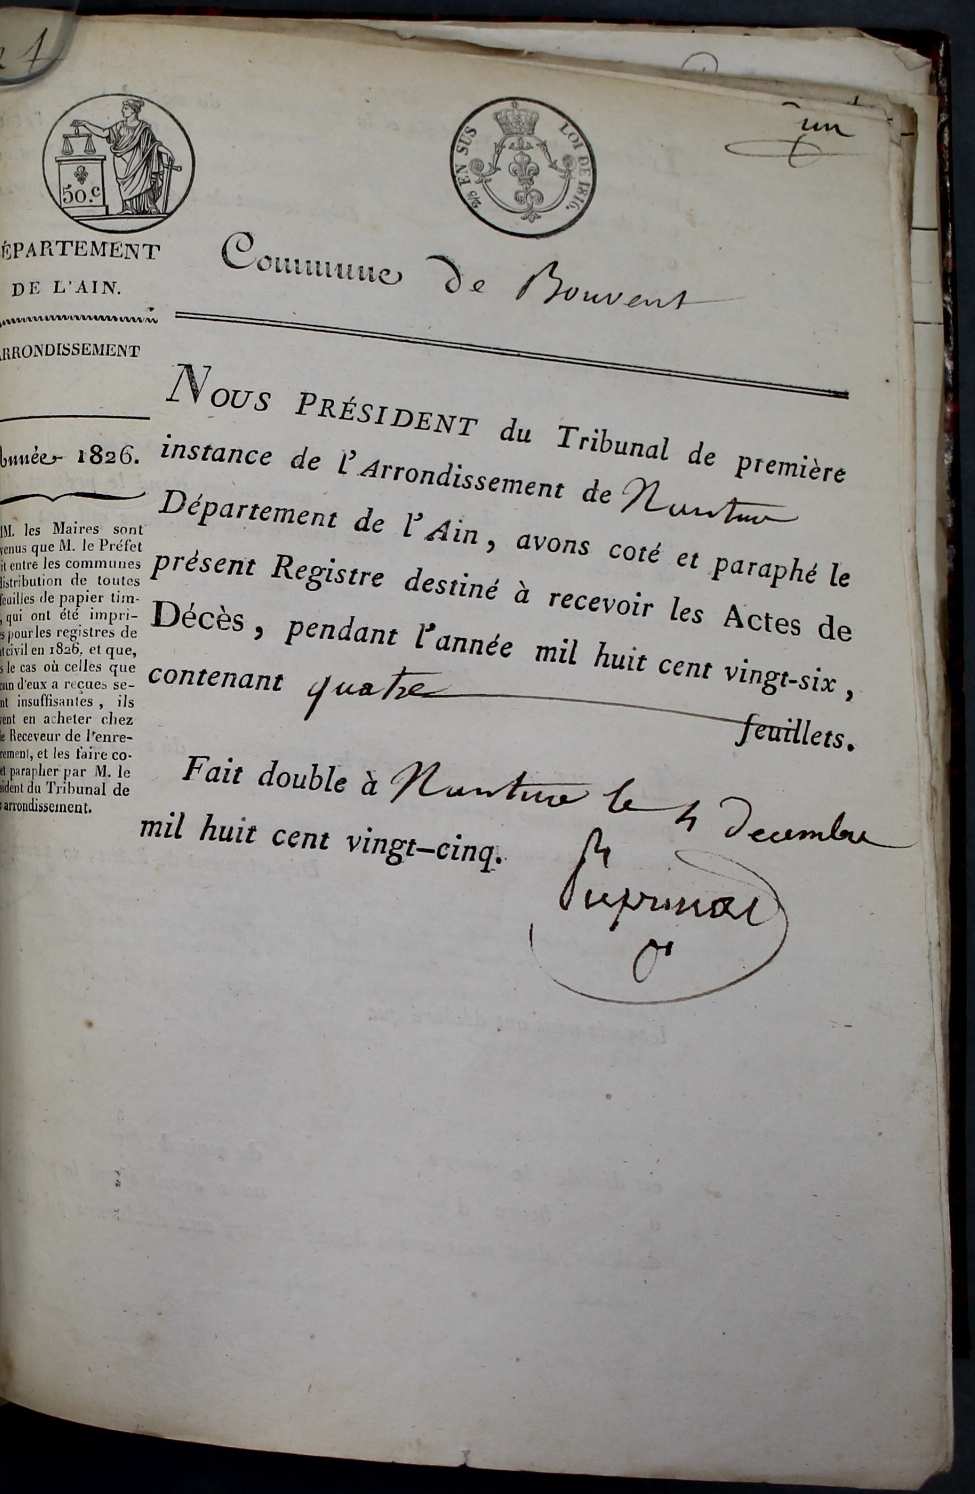 1
50.c
2/5 EN SUS
LOI DE 1816.
un
ÉPARTEMENT
DE L'AIN.
ARRONDISSEMENT
Année 1826.
MM. les Maires sont
venus que M. le Préfet
it entre les communes
distribution de toutes
feuilles de papier tim-
, qui ont été impri-
s pour les registres de
tcivil en 1826, et que,
s le cas où celles que
cun d'eux a reçues se-
nt insuffisantes, ils
vent en acheter chez
le Receveur de l'enre-
rement, et les faire co-
et parapher par M. le
sident du Tribunal de
arrondissement.
Commune de Bouvent
NOUS PRÉSIDENT du Tribunal de première
instance de l'Arrondissement de Nantua
Département de l'Ain, avons coté et paraphé le
présent Registre destiné à recevoir les Actes de
Décès, pendant l'année mil huit cent vingt-six,
contenant quatre feuillets.
Fait double à Nantua le 4 Decembre
mil huit cent vingt-cinq.